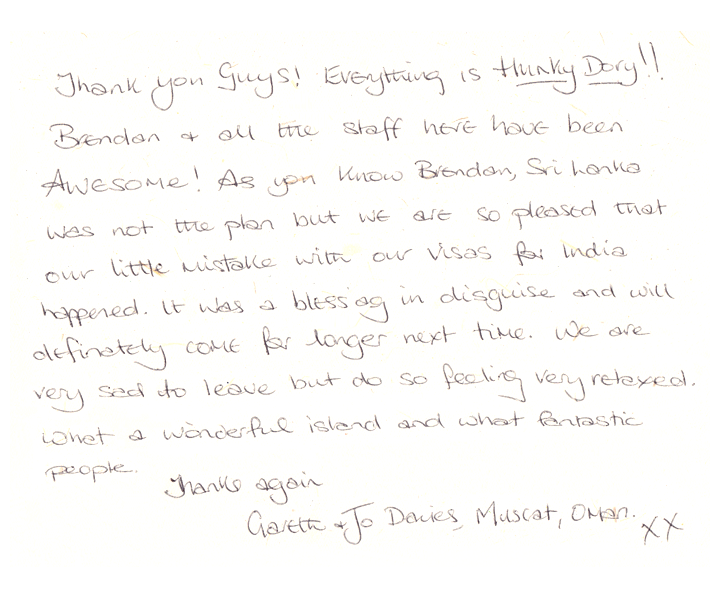 Thank you Guys! Everything is Hunky Dory!!
Brendan & all the staff here have been
Awesome! As you know Brendan, Sri Lanka
was not the plan but we are so pleased that
our little mistake with our visas for India
happened. It was a blessing in disguise and will
definately come for longer next time. We are
very sad to leave but do so feeling very relaxed.
What a wonderful island and what fantastic
people.
Thanks again
Gareth & Jo Davies, Muscat, Oman. XX